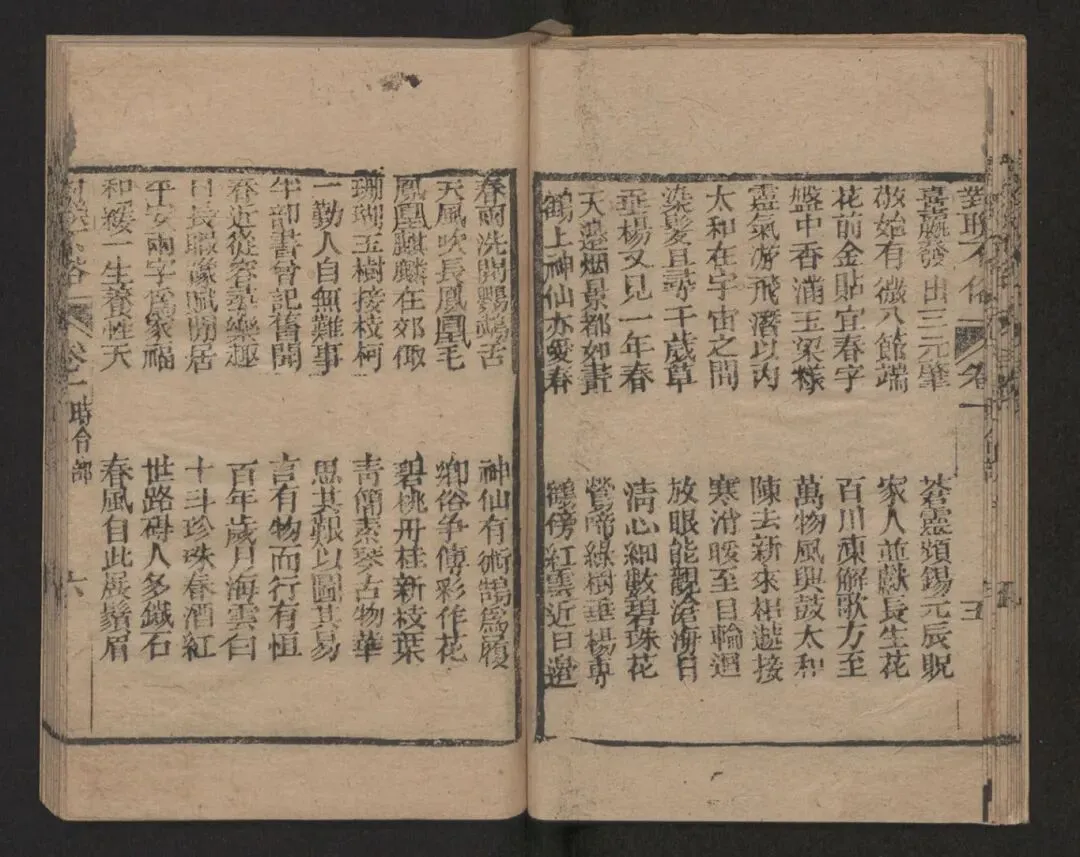 對聯不俗 卷一 五
發出三元肇 靈頒錫元辰貺
敬始有 八節端 家人並獻長生花
花前金貼宜春字 百川凍解歌方至
盤中香滿玉粱糕 萬物風興鼓太和
靈氣游飛潛以內 陳去新來相遞接
太和在宇宙之間 寒消暖至日輪迴
染髮且尋千歲草 放眼能觀滄海日
垂楊又見一年春 清心細數碧珠花
天邊烟景都如畫 鶯啼綠樹垂楊專
鶴上神仙亦愛春 鶴傍紅雲近日邊
春雨洗開鸚鵡舌 神仙有術鵠爲履
天風吹長鳳凰毛 鄉俗爭傳彩作花
鳳凰麒麟在郊陬 碧桃丹桂新枝葉
珊瑚玉樹接枝柯 青簡素琴古物華
一勤人自無難事 思其艱以圖其易
部書曾記舊聞 言有物而行有恒
春近從容尋樂趣 百年歲月海雲白
日長暇豫賦閒居 十斗珍珠春酒紅
平安兩字爲家福 世路碍人多鐵石
和緩一生養性天 春風自此展鬚眉
卷一 時令部 六